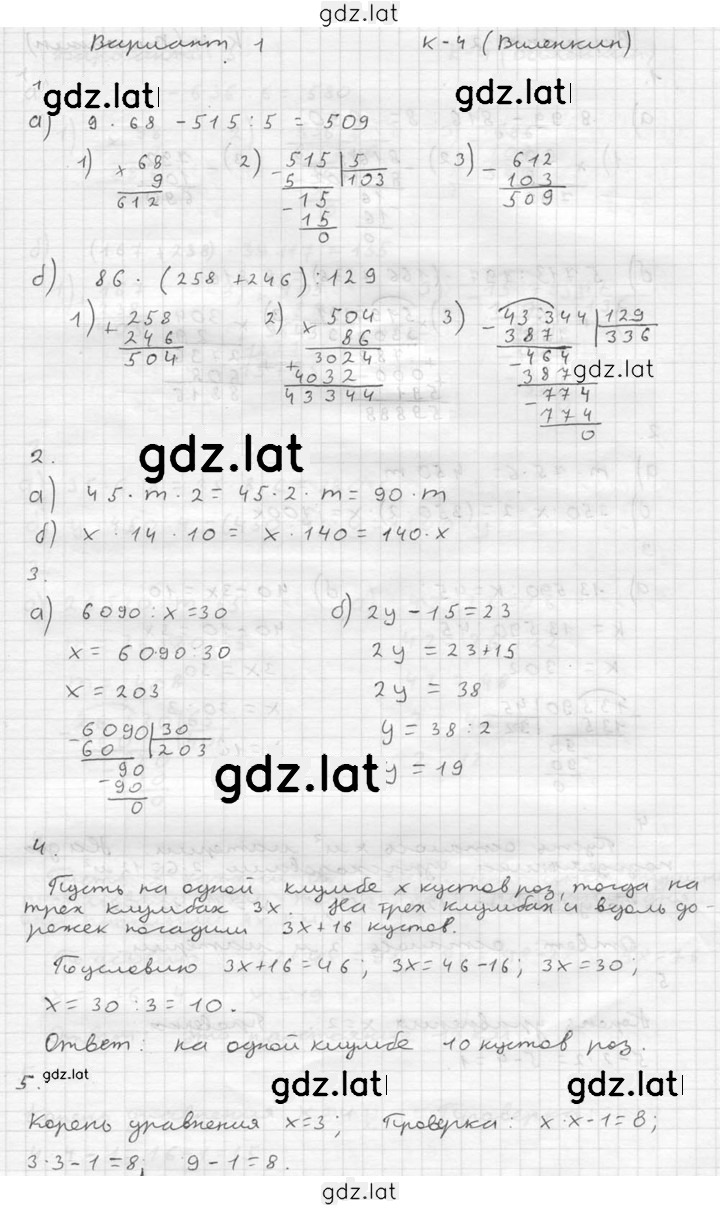 gdz.lat
Вариант 1 К-4 (Виленкин)
1.
gdz.lat gdz.lat
а) 9 · 68 - 515 : 5 = 509
1) × 68 2) - 515 | 5 3) - 612
9 5 103 103
612 - 15 509
15
0
б) 86 · (258 + 246) : 129
1) + 258 2) × 504 3) - 43344 | 129
246 86 387 336
504 + 3024 - 464
4032 387 gdz.lat
43344 - 774
774
0
gdz.lat
2.
а) 45 · m · 2 = 45 · 2 · m = 90 · m
б) x · 14 · 10 = x · 140 = 140 · x
3.
а) 6090 : x = 30 б) 2y - 15 = 23
x = 6090 : 30 2y = 23 + 15
x = 203 2y = 38
- 6090 | 30 y = 38 : 2
60 203
- 90 gdz.lat y = 19
90
0
4.
Пусть на одной клумбе x кустов роз, тогда на
трех клумбах 3x. На трех клумбах и вдоль до-
рожек посадили 3x + 16 кустов.
По условию 3x + 16 = 46; 3x = 46 - 16; 3x = 30;
x = 30 : 3 = 10.
Ответ: на одной клумбе 10 кустов роз.
5. gdz.lat gdz.lat gdz.lat
Корень уравнения x = 3; Проверка: x · x - 1 = 8;
3 · 3 - 1 = 8, 9 - 1 = 8.
gdz.lat